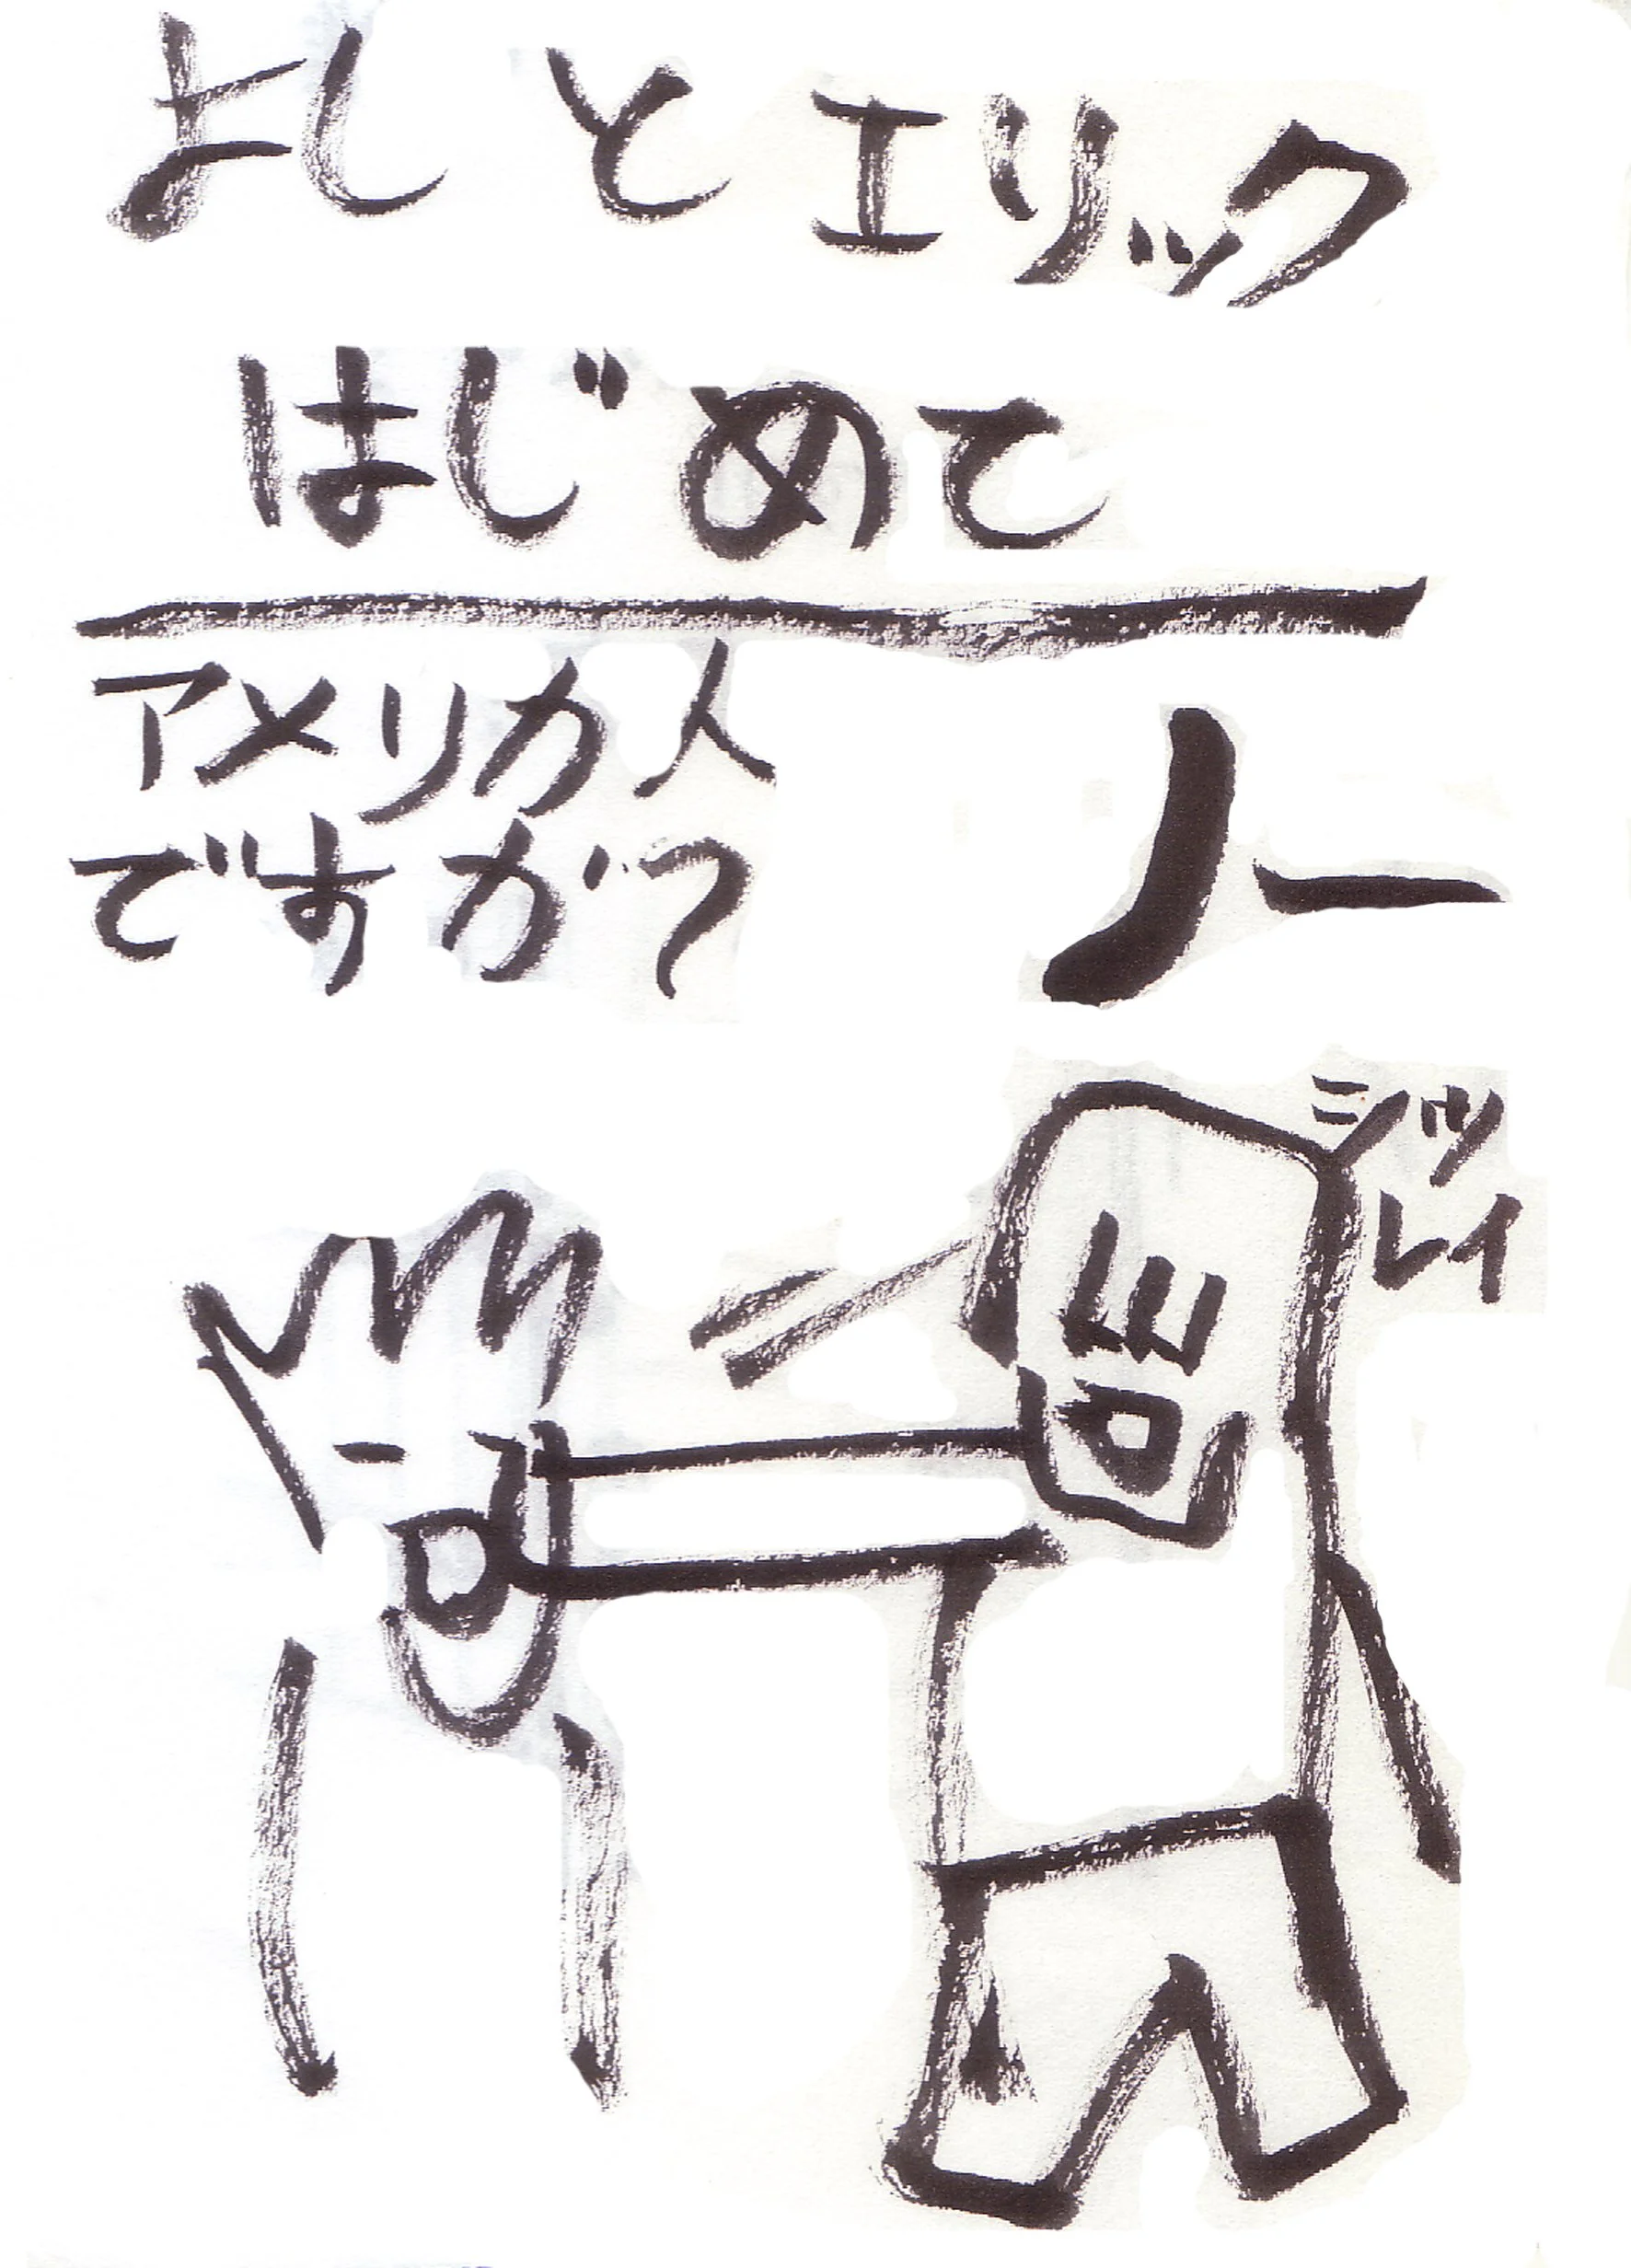 よし と エリック
はじめて
アメリカ人
ですが?
ノー
シッ
レイ